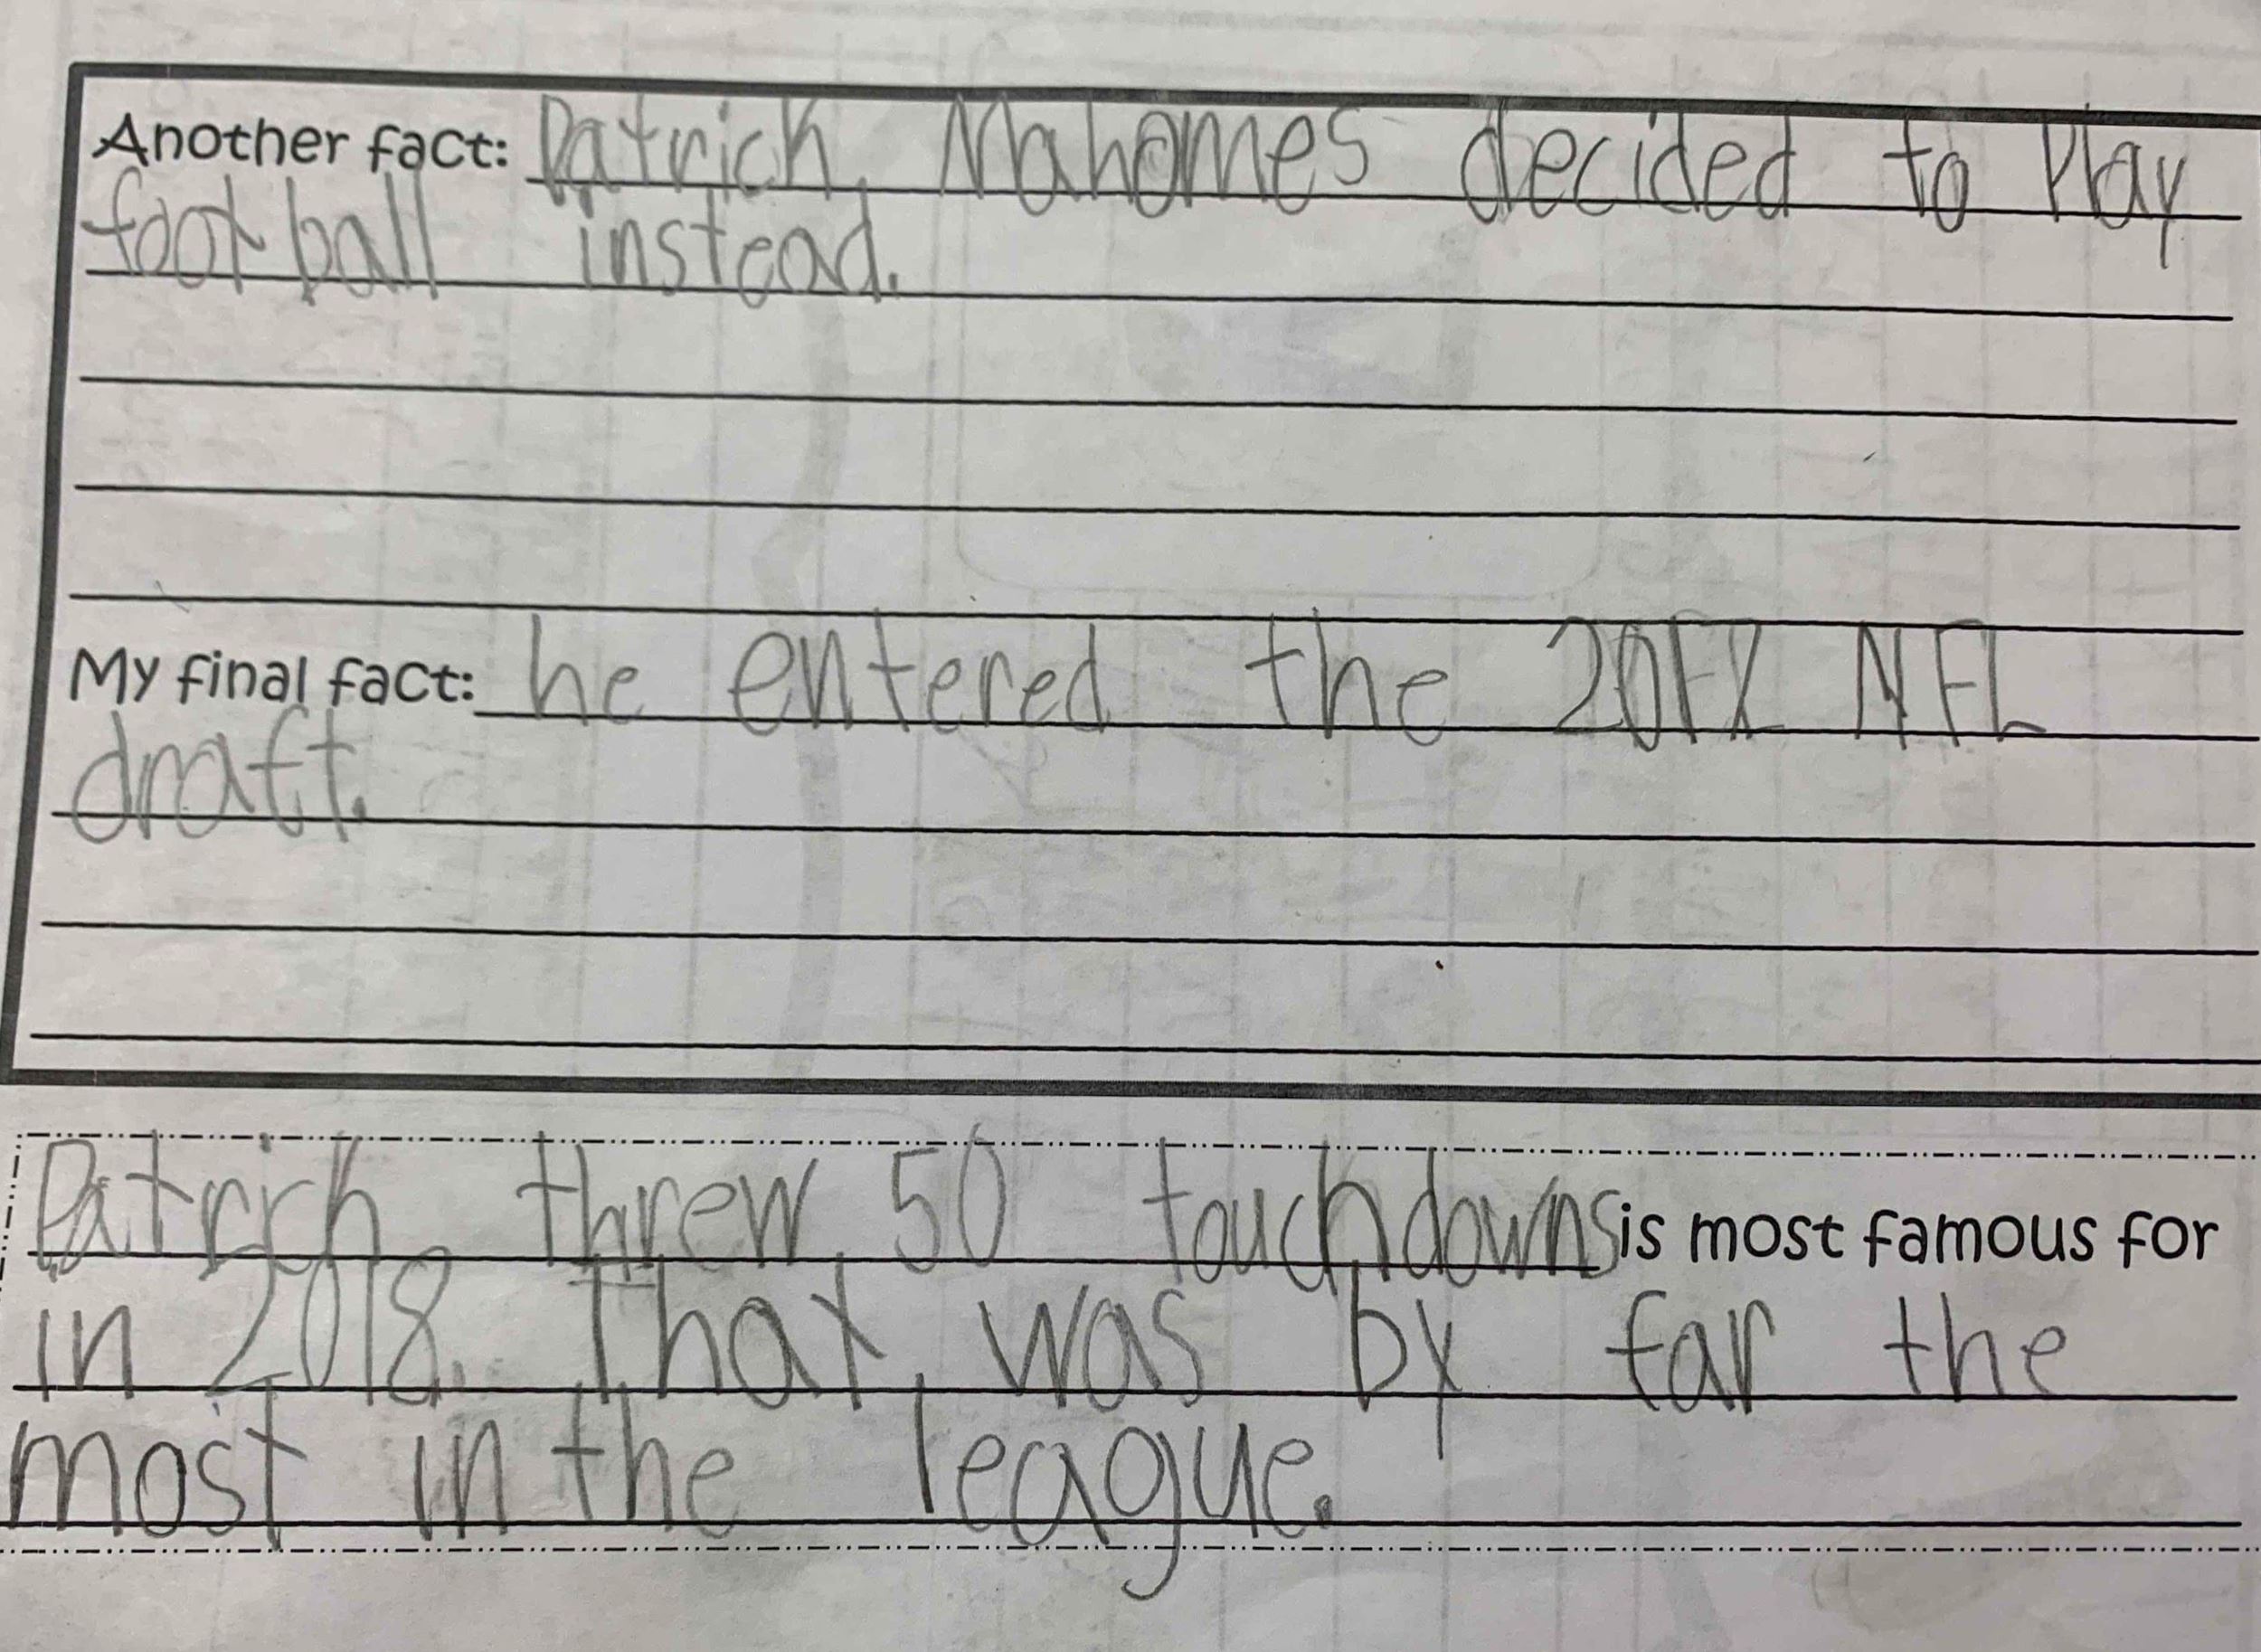 Another fact: Patrick Mahomes decided to Play
football instead.
My final fact: he entered the NFL
draft.
Patrick threw 50 touchdowns is most famous for
in 2018. That was by far the
most in the league.